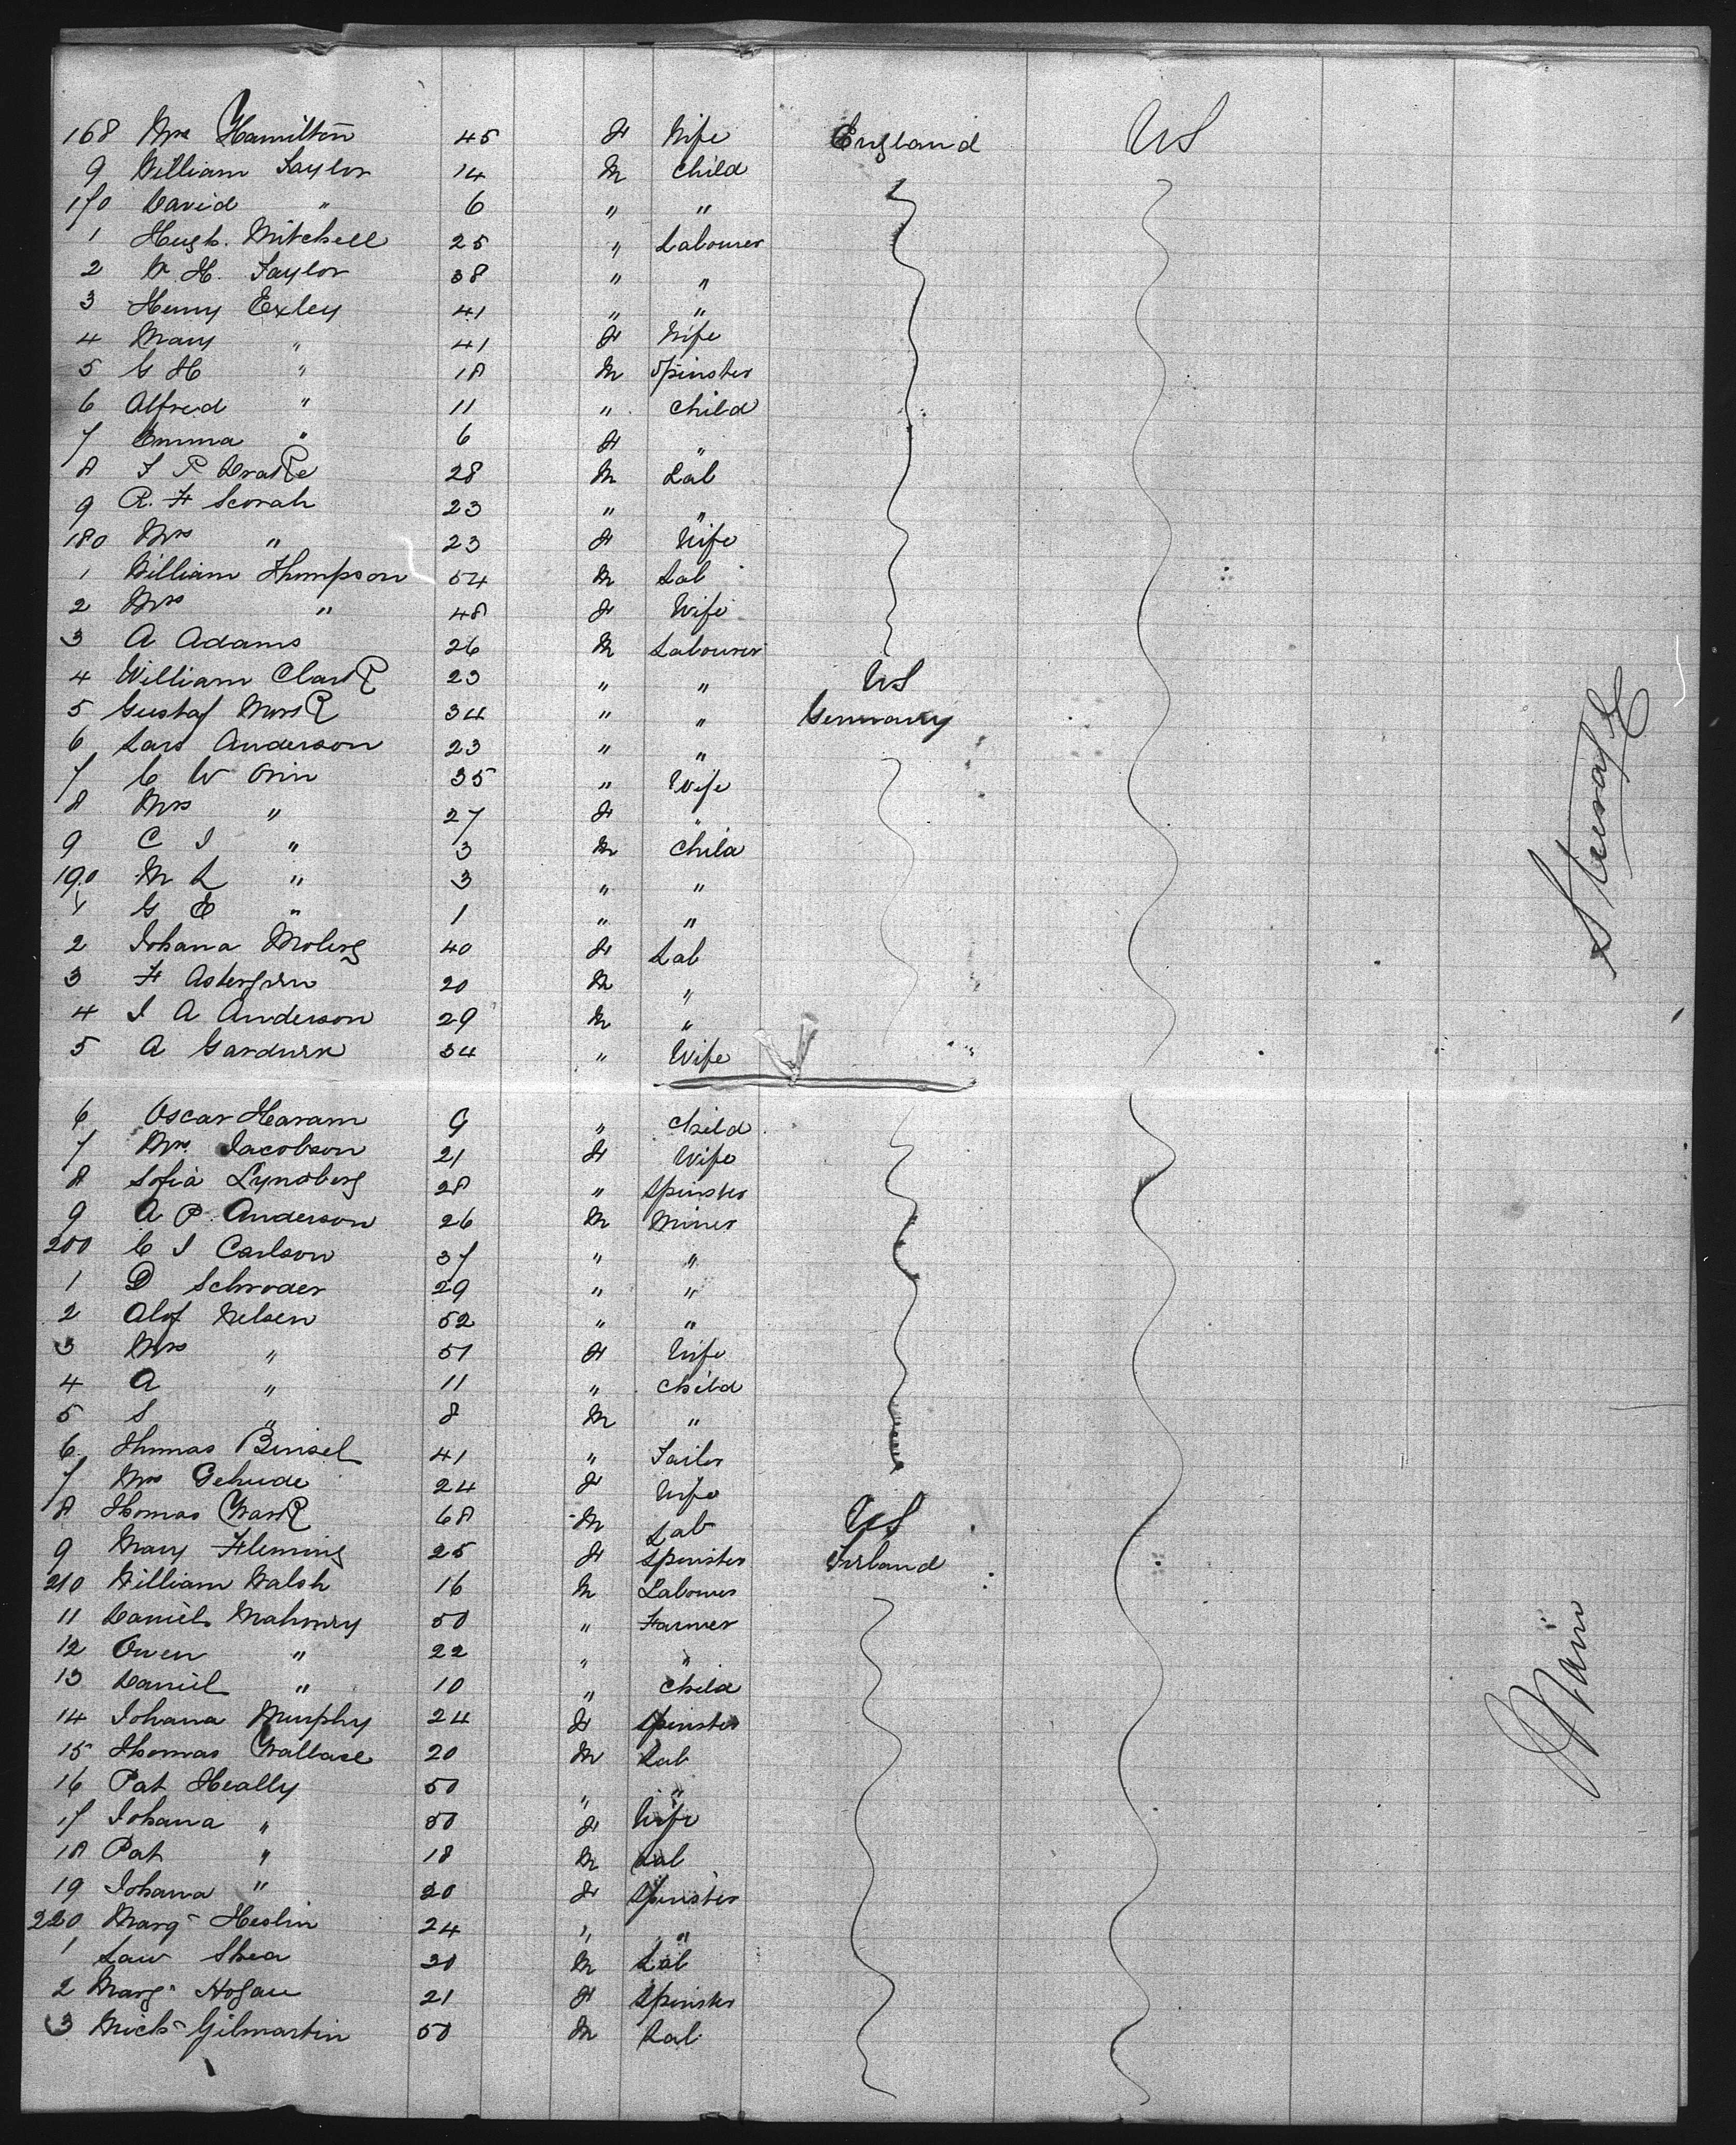 168 Mrs Hamilton 45 F Wife England US
9 William Taylor 14 M Child
170 David " 6 " "
1 Hugh. Mitchell 25 " Labourer
2 W. H. Taylor 38 " "
3 Henry Exley 41 " "
4 Mary " 41 F Wife
5 G H " 18 M Spinster
6 Alfred " 11 " Child
7 Emma " 6 F "
8 J P Drake 28 M Lab
9 R. F Scorah 23 " "
180 Mrs " 23 F Wife
1 William Thompson 54 M Lab
2 Mrs " 48 F Wife
3 A Adams 26 M Labourer
4 William Clark 23 " " US
5 Gustaf Mork 34 " " Germany
6 Lars Anderson 23 " "
7 C W Orin 35 " Wife
8 Mrs " 27 F "
9 C J " 3 M Child
190 M L " 3 " "
1 G E " 1 " "
2 Johana Moberg 40 F Lab
3 F 20 M "
4 J A Anderson 29 M "
5 A 34 " Wife
6 Oscar Haram 9 " Child
7 Mrs. Jacobson 21 F Wife
8 Sofia Lyndberg 28 " Spinster
9 A P. Anderson 26 M Miner
200 C J Carlson 37 " "
1 D Schroder 29 " "
2 Alof Nelsen 52 " "
3 Mrs " 51 F Wife
4 A " 11 " Child
5 S " 8 M "
6 Thomas Binsel 41 " Tailor
7 Mrs Gehude 24 F Wife
8 Thomas Wark 68 M Lab US
9 Mary Fleming 25 F Spinster Irland
210 William Walsh 16 M Labourer
11 Daniel Mahoney 50 " Farmer
12 Owen " 22 " "
13 Daniel " 10 " Child
14 Johana Murphy 24 F Spinster
15 Thomas Wallace 20 M Lab
16 Pat Heally 50 " "
17 Johana " 50 F Wife
18 Pat " 18 M Lab
19 Johana " 20 F Spinster
220 Marg Heslin 24 " "
1 Law Shea 30 M Lab
2 Marg Hogan 21 F Spinster
3 Mich Gilmartin 50 M Lab
Steerage
Main